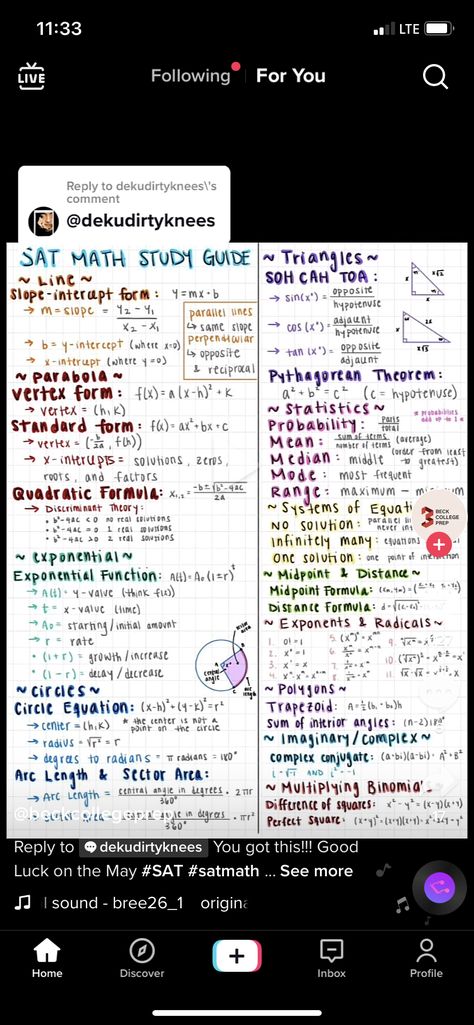 11:33
LTE
LIVE
Following
For You
Reply to dekudirtyknees\'s
comment
@dekudirtyknees
SAT MATH STUDY GUIDE
~ Line ~
Slope-intercept form: y=mx+b
→ m=slope = y₂-y₁
x₂-x₁
→ b= y-intercept (where x=0)
→ x-intercept (where y=0)
parallel lines
↳ same slope
perpendicular
↳ opposite
& reciprocal
~ Parabola ~
vertex form: f(x)=a(x-h)²+k
→ vertex = (h,k)
Standard form: f(x)=ax²+bx+c
→ vertex = (-b/2a, f(h))
→ x-intercepts = solutions, zeros,
roots, and factors
Quadratic Formula: x₁,₂= -b±√b²-4ac
2a
→ Discriminant Theory:
• b²-4ac<0 no real solutions
• b²-4ac=0 1 real solutions
• b²-4ac>0 2 real solutions
~ exponential ~
Exponential Function: A(t)=A₀(1±r)ᵗ
→ A(t)= y-value (think f(x))
→ t= x-value (time)
→ A₀= starting/initial amount
→ r= rate
• (1+r) = growth/increase
• (1-r) = decay/decrease
central
angle
arc
length
~ Circles ~
Circle Equation: (x-h)²+(y-k)²=r²
→ center =(h,k)
* the center is not a
point on the circle
→ radius =√r²=r
→ degrees to radians = π radians = 180°
Arc Length & Sector Area:
→ Arc Length = central angle in degrees · 2πr
360°
Area = angle in degrees · πr²
360°
~ Triangles ~
SOH CAH TOA:
→ sin(x°) = opposite
hypotenuse
→ cos(x°) = adjacent
hypotenuse
→ tan(x°) = opposite
adjacent
Pythagorean Theorem:
a²+b²=c² (c= hypotenuse)
~ Statistics ~
* probabilities
add up to 1
Probability: parts
total
Mean: sum of terms
number of terms
(average)
Median: middle (order from least
→ greatest)
Mode: most frequent
Range: maximum - minimum
~ Systems of Equat
No solution: parallel
never
Infinitely many: equations
One solution: one point of
BECK
COLLEGE
PREP
~ Midpoint & Distance ~
Midpoint Formula:
Distance Formula:
~ Exponents & Radicals ~
1. 0!=1
2. x°=1
3. x¹=x
~ Polygons ~
Trapezoid: A=½(b₁+b₂)h
Sum of interior angles: (n-2)180°
~ Imaginary/Complex ~
complex conjugate: (a-bi)(a+bi)=A²+B²
AND
~ Multiplying Binomia
Difference of squares: x²-y²=(x-y)(x+y)
Perfect Square: (x+y)²=(x+y)(x+y)=x²+2xy+y²
@beckcollegeprep
Reply to dekudirtyknees You got this!!! Good
Luck on the May #SAT #satmath ... See more
l sound - bree26_1 origina
Home
Discover
Inbox
Profile